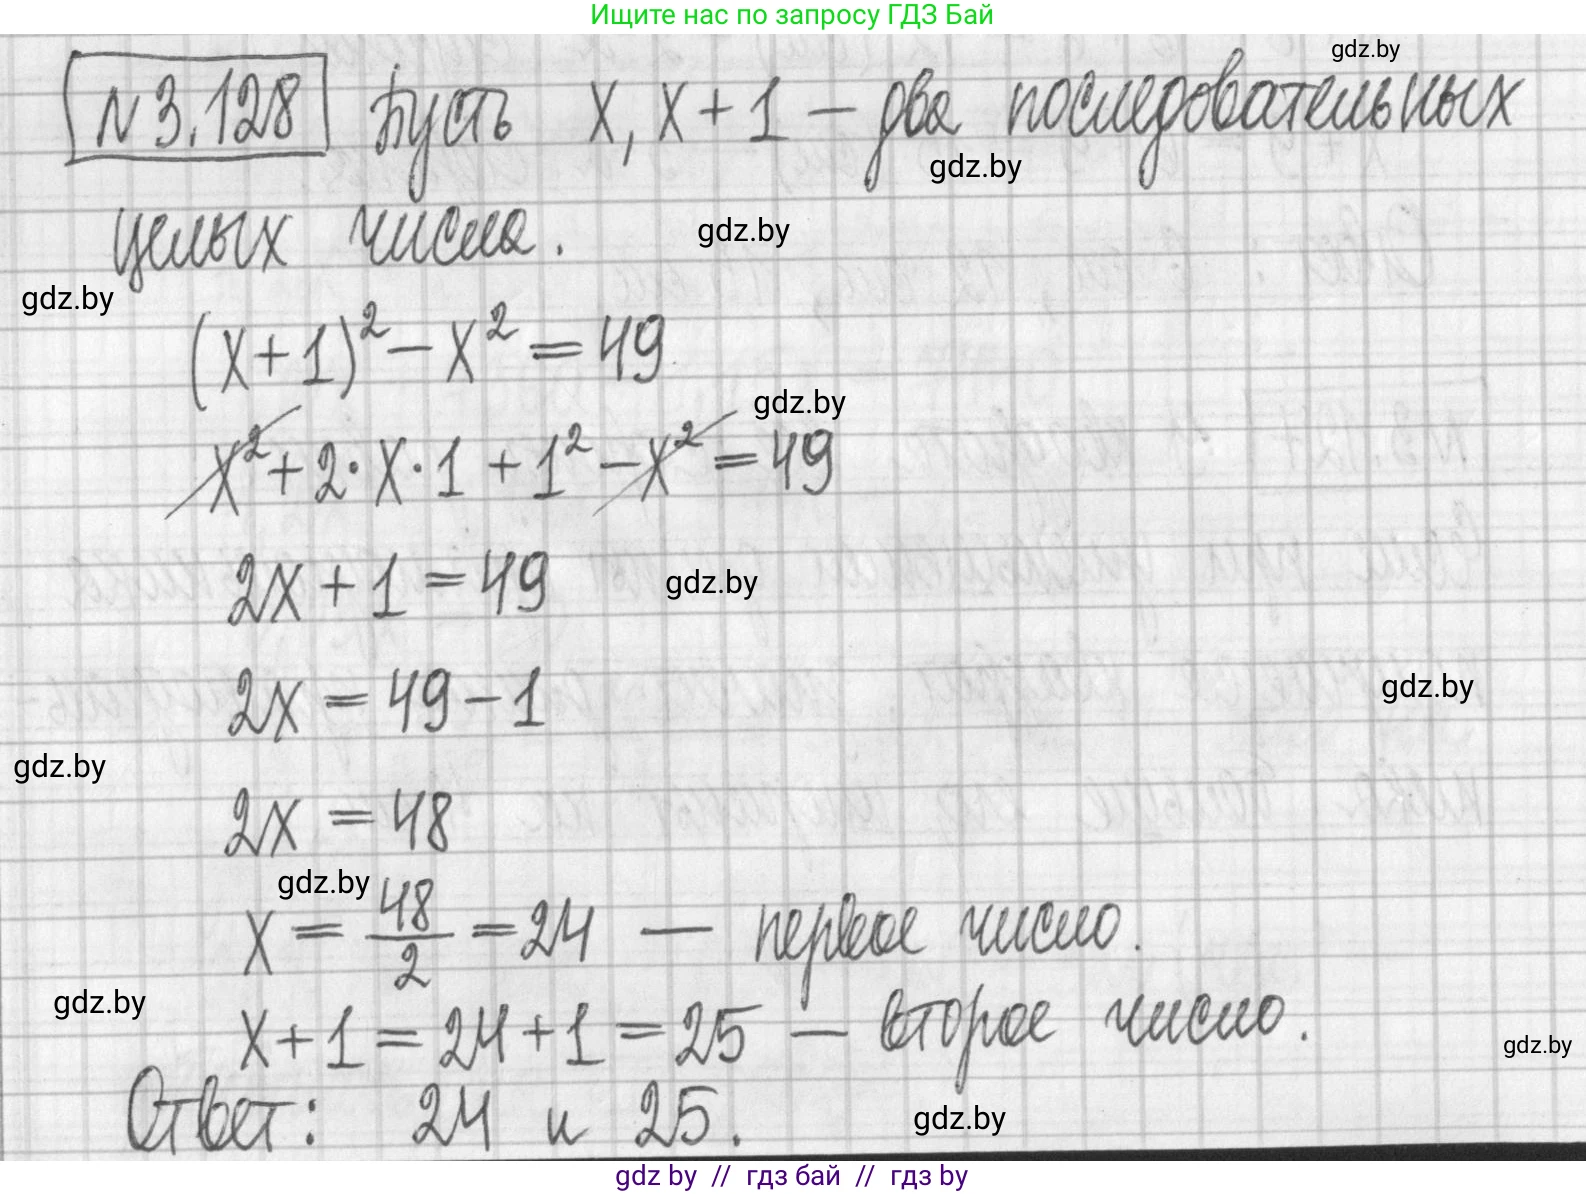 Ищите нас по запросу ГДЗ Бай
gdz.by
N 3.128 Пусть x, x + 1 – два последовательных
gdz.by
целых числа.
gdz.by
gdz.by
(x+1)² – x² = 49
gdz.by
x² + 2·x·1 + 1² – x² = 49
2x + 1 = 49
gdz.by
2x = 49 – 1
gdz.by
gdz.by
2x = 48
gdz.by
x = 48/2 = 24 — первое число.
gdz.by
x + 1 = 24 + 1 = 25 — второе число.
gdz.by
Ответ: 24 и 25.
gdz.by
gdz by // гдз бай // gdz by